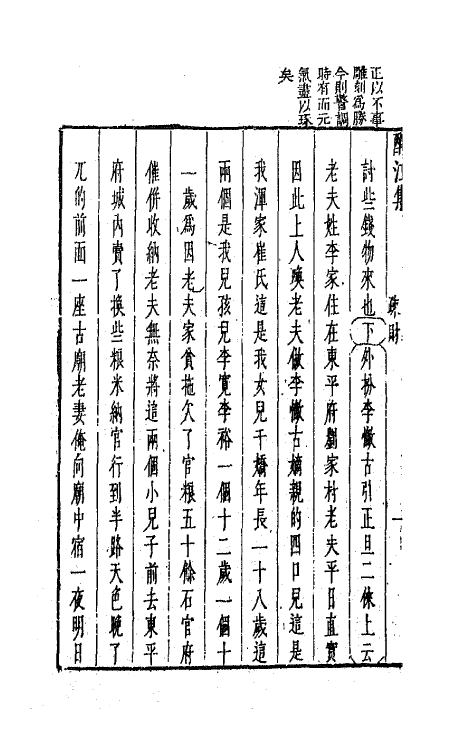 正以不事
雕刻為勝
今則警調
時有而元
氣盡以琢
矣
酹江集
討些錢物來也下外扮李懒古引正旦二俫上云
老夫姓李家住在東平府劉家村老夫平日直實
因此上人喚老夫做李懒古嫡親的四口兒這是
我渾家崔氏這是我女兒千嬌年長一十八歲這
兩個是我兒孩兒李寬李裕一個十二歲一個十
一歲為因老夫家貧拖欠了官粮五十餘石官府
催併收納老夫無奈將這兩個小兒子前去東平
府城內賣了換些粮米納官行到半路天色晚了
兀的前面一座古廟老妻俺向廟中宿一夜明日